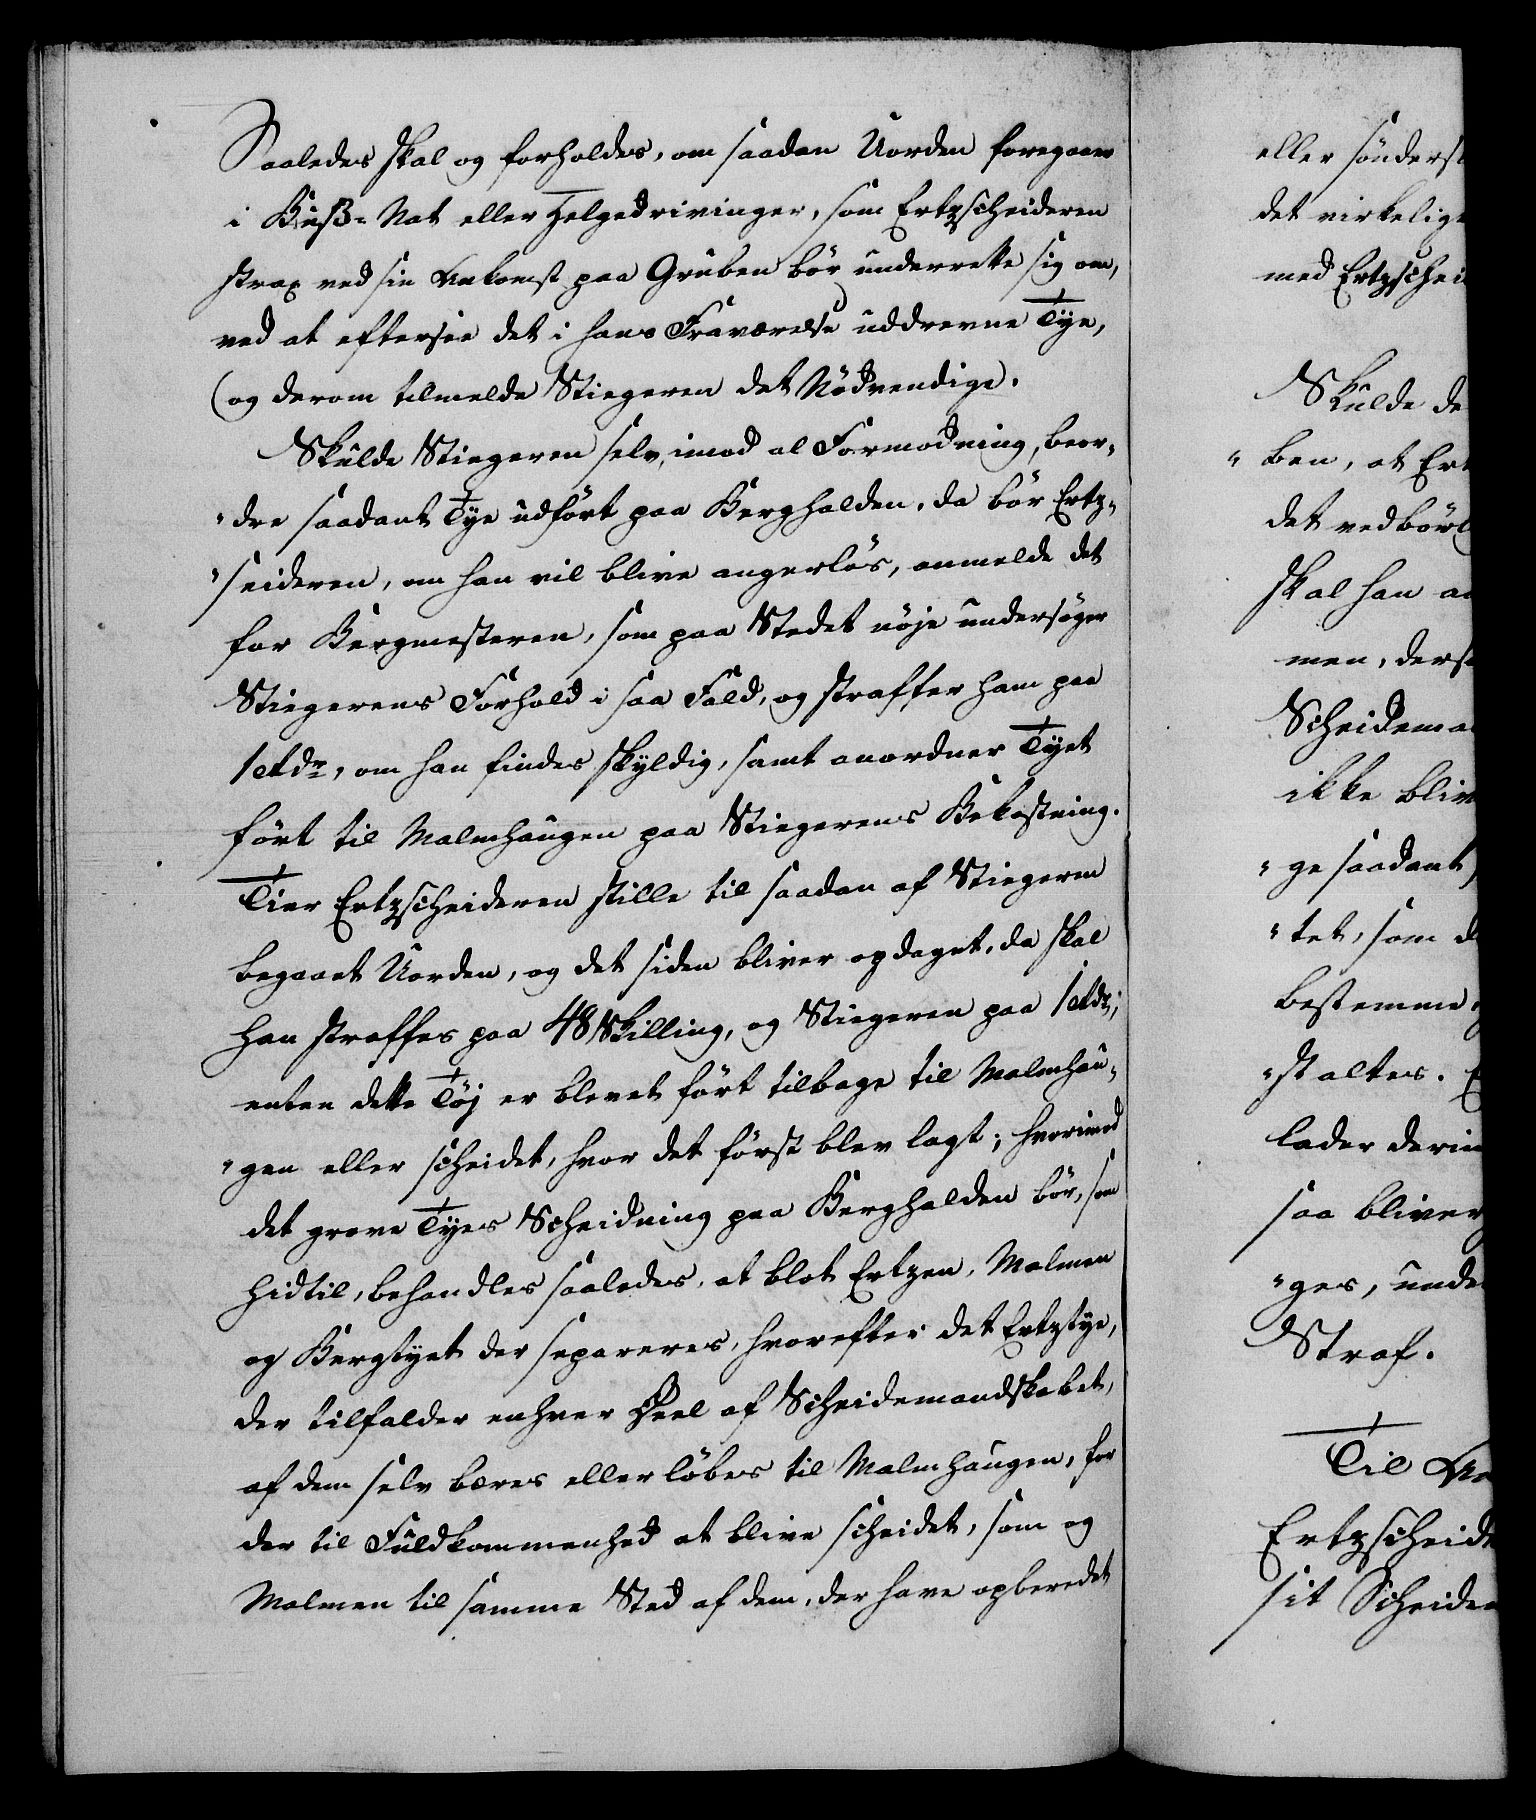 Saaledes skal og forholdes, om saadan Uorden foregaaer
i Buß- Nat eller Helgedrivinger, som Ertzscheideren
strax ved sin Ankomst paa Gruben bör underrette sig om,
ved at eftersee det i hans Fraværelse uddrevne Tye,
(og derom tilmelde Stiegeren det Nödvendige.
Skulde Stiegeren selv, imod al Formodning, beor„
„dre saadant Tye udfört paa Berghalden, da bör Ertz„
„seideren, om han vil blive angerlös, anmelde det
for Bergmesteren, som paa Stedet nöje undersöger
Stiegerens Forhold i saa Fald, og straffer ham paa
1 Rdr, om han findes skyldig, samt anordner Tyet
fört til Malmhaugen paa Stiegerens Bekostning.
Tier Ertzscheideren stille til saadan af Stiegeren
begaaet Uorden, og det siden bliver opdaget, da skal
han straffes paa 48 Skilling, og Stiegeren paa 1 Rdr;
enten dette Töj er blevet fört tilbage til Malmhau„
„gen eller scheidet, hvor det först blev lagt; hvorimod
det grove Tyes Scheidning paa Berghalden bör, som
hidtil, behandles saaledes, at blot Ertzen, Malmen
og Bergtyet der separeres, hvorefter det Ertztye,
der tilfalder enhver Deel af Scheidemandskabet,
af dem selv bæres eller löbes til Malmhaugen, for
der til Fuldkommenhed at blive scheidet, som og
Malmen til samme Sted af dem, der have opberedet
eller sönders
det virkelige
med Ertzschei
Skulde de
„ben, at Ert
det vedbörl
skal han a
men, ders
Scheidema
ikke bliv
„ge saadant
„tet, som d
bestemme
„staltes.
lader derim
saa bliver
„ges, unde
Straf.
Til An
Ertzscheid
sit Scheide